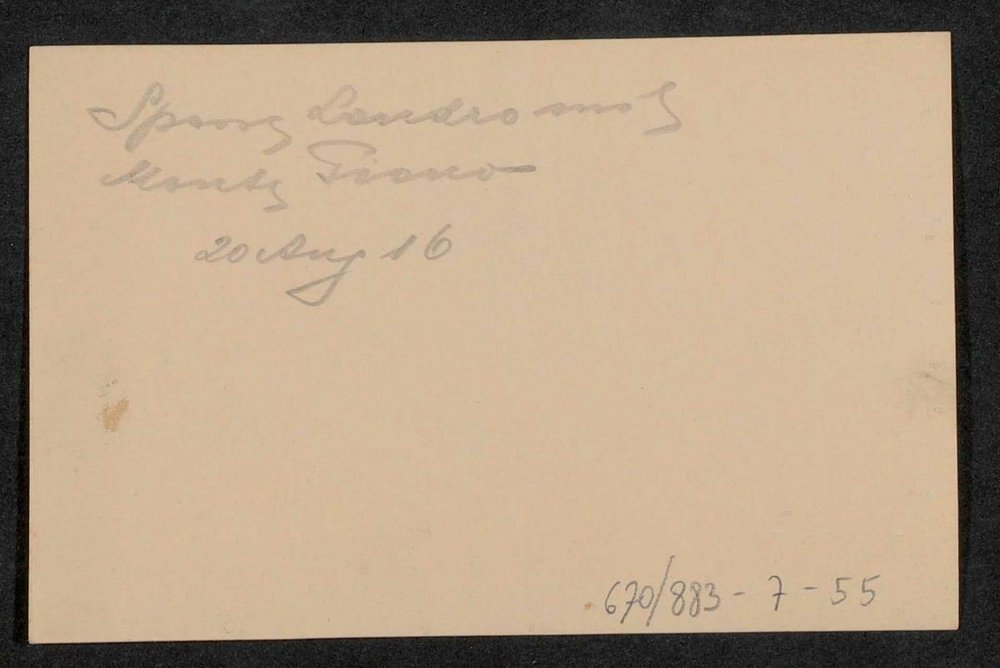 Sperre Landro mit
Monte Piano
20 Aug 16
670/883-7-55